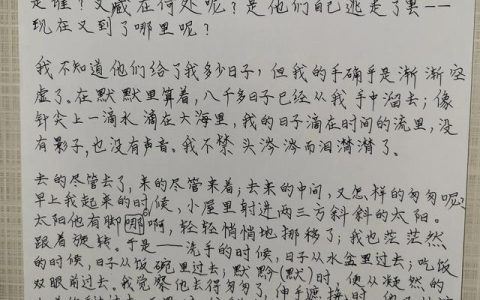 是谁？又藏在何处呢？是他们自己逃走了罢——
现在又到了哪里呢？
我不知道他们给了我多少日子，但我的手确乎是渐渐空
虚了。在默默里算着，八千多日子已经从我手中溜去；像
针尖上一滴水滴在大海里，我的日子滴在时间的流里，没
有影子，也没有声音。我不禁头涔涔而泪潸潸了。
去的尽管去了，来的尽管来着；去来的中间，又怎样的匆匆呢？
早上我起来的时候，小屋里射进两三方斜斜的太阳。
太阳他有脚哪啊，轻轻悄悄地挪移了；我也茫茫然
跟着旋转。于是——洗手的时候，日子从水盆里过去；吃饭
的时候，日子从饭碗里过去；默黔(默)时，便从凝然的
双眼前过去。我觉察他去得匆匆了，伸手遮挽时，他